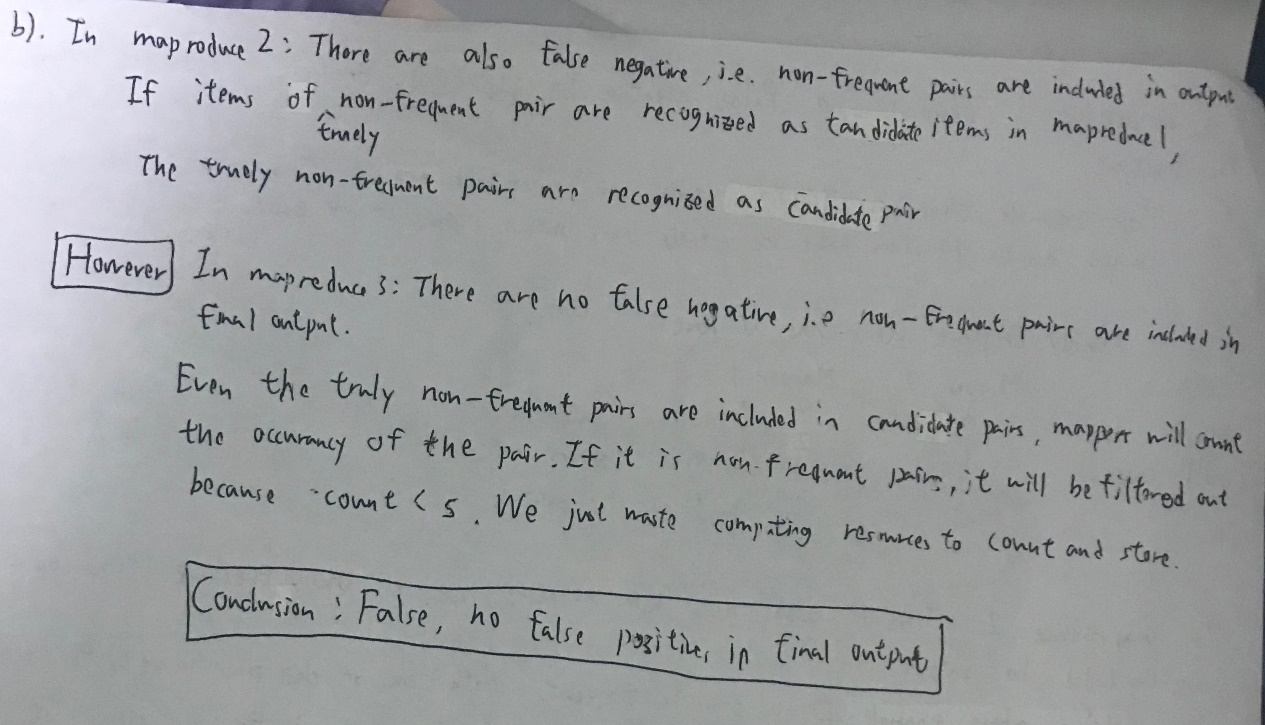 b). In maproduce 2: There are also false negative, i.e. non-frequent pairs are included in output
If items of non-frequent pair are recognized as candidate items in mapreduce 1,
truely
The truely non-frequent pairs are recognized as candidate pair
However In mapreduce 3: There are no false negative, i.e non-frequent pairs are included in
final output.
Even the truly non-frequent pairs are included in candidate pairs, mappers will count
the occurancy of the pair. If it is non-frequent pairs, it will be filtered out
because count < s. We just waste computing resources to count and store.
Conclusion: False, no false positives in final output